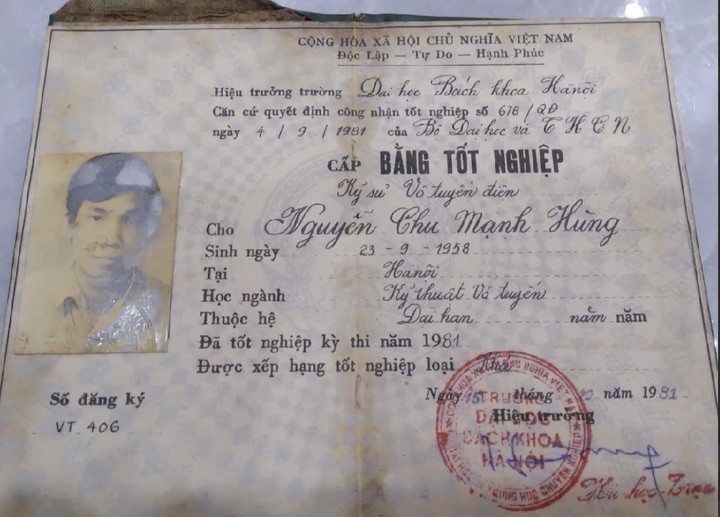 CỘNG HÒA XÃ HỘI CHỦ NGHĨA VIỆT NAM
Độc Lập — Tự Do — Hạnh Phúc
Hiệu trưởng trường Đại học Bách khoa Hà nội
Căn cứ quyết định công nhận tốt nghiệp số 678/QĐ
ngày 4/9/1981 của Bộ Đại học và T H C N
CẤP BẰNG TỐT NGHIỆP
Kỹ sư Vô tuyến điện
Cho Nguyễn Chu Mạnh Hùng
Sinh ngày 23-9-1958
Tại Hà nội
Học ngành Kỹ thuật Vô tuyến
Thuộc hệ Dài hạn năm năm
Đã tốt nghiệp kỳ thi năm 1981
Được xếp hạng tốt nghiệp loại Khá
Ngày 15 tháng năm 1981
Hiệu trưởng
Số đăng ký
VT 406
TRƯỜNG
ĐẠI HỌC
BÁCH KHOA
HÀ NỘI